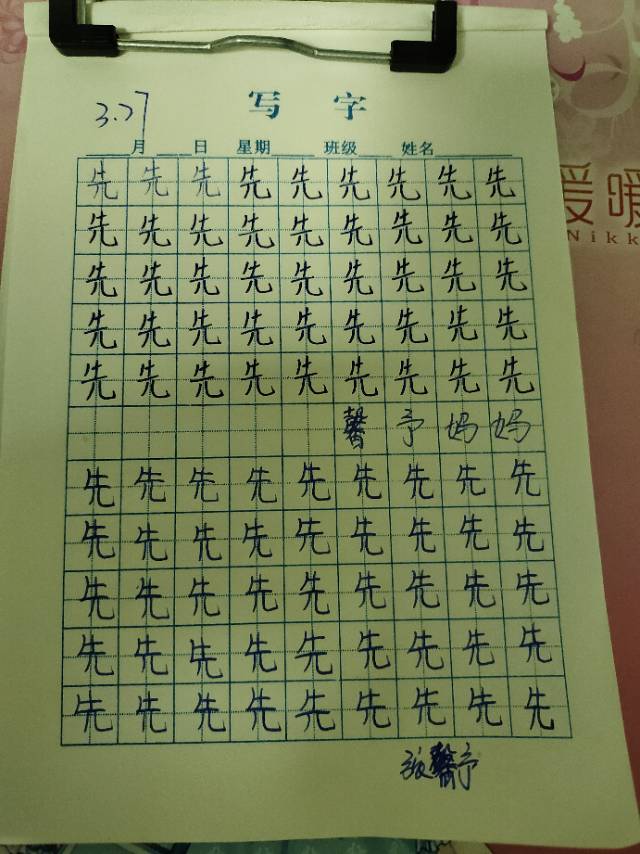 写 字
3.27
月 日 星期 班级 姓名
先 先 先 先 先 先 先 先 先
先 先 先 先 先 先 先 先 先
先 先 先 先 先 先 先 先 先
先 先 先 先 先 先 先 先 先
先 先 先 先 先 先 先 先 先
馨 予 妈 妈
先 先 先 先 先 先 先 先 先
先 先 先 先 先 先 先 先 先
先 先 先 先 先 先 先 先 先
先 先 先 先 先 先 先 先 先
先 先 先 先 先 先 先 先 先
馨予
暖
Nikk